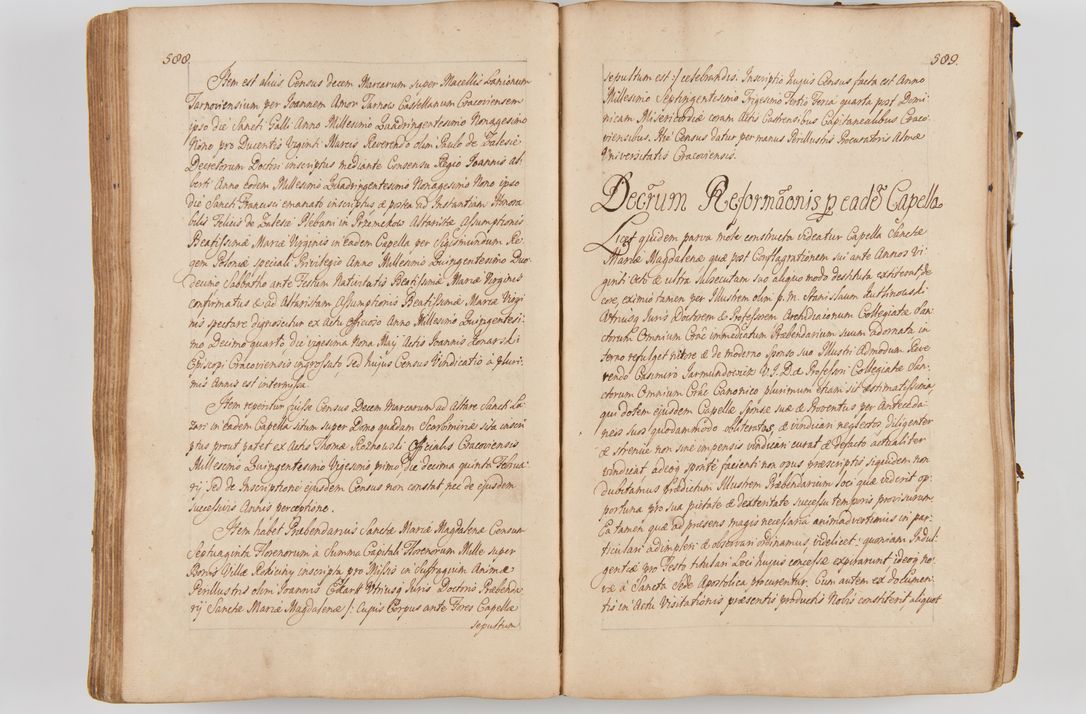 588.
Item est alius Census decem Marcarum super Macellis Lanionum
Tarnoviensium per Joannem Amor Tarnow Castellanum Cracoviensem
ipso die Sancti Galli Anno Millesimo Quadringentesimo Nonagesimo
Nono pro Ducentis Viginti Marcis Reverendo olim Paulo de Zalesie
Decretorum Doctori inscriptus mediante Consensu Regio Joannis Al-
berti Anno eodem Millesimo Quadringentesimo Nonagesimo Nono ipso
die Sancti Francisci emanato inscriptus & postea ad Instantiam Honora-
bilis Felicis de Zalesie Plebani in Przemekow Altaristæ Assumptionis
Beatissimæ Mariæ Virginis in eadem Capella per Sigismundum Re-
gem Poloniæ speciali Privilegio Anno Millesimo Quingentesimo Duo-
decimo Sabbatho ante Festum Nativitatis Beatissimæ Mariæ Virginis
confirmatus & ad Altaristam Assumptionis Beatissimæ Mariæ Virgi-
nis spectare dignoscitur ex Actu Officioso Anno Millesimo Quingentesi-
mo Decimo quarto die vigesima Nona Maij Actis Joannis Konarski
Episcopi Cracoviensis ingrossato, sed hujus Census Vindicatio à pluri-
mis Annis est intermissa.
Item reperitur fuisse Census Decem Marcarum ad Altare Sancti La-
zari in eadem Capella situm super Domo quadam Skorbimiriæ sita inscri-
ptus prout patet ex Actis Thomæ Rożnowski Officialis Cracoviensis
Millesimo Quingentesimo Vigesimo primo Die decima quinta Februa-
rij, sed de Inscriptione ejusdem Census non constat nec de ejusdem
successivis Annis perceptione.
Item habet Præbendarius Sanctæ Mariæ Magdalenæ Censum
Septuaginta Florenorum à Summa Capitali Florenorum Mille super
Bonis Villæ Rokiciny inscripta, pro Missis in Suffragium Animæ
Perillustris olim Joannis Utriusq Juris Doctoris Præbenda-
rij Sanctæ Mariæ Magdalenæ /: Cujus Corpus ante Fores Capellæ
sepultum
589.
sepultum est :/ celebrandis. Inscriptio hujus Census facta est Anno
Millesimo Septingentesimo Trigesimo Tertio Feria quarta post Domi-
nicam Misericordiæ coram Actis Castrensibus Capitanealibus Craco-
viensibus. Hic Census datur per manus Perillustris Procuratoris Almæ
Universitatis Cracoviensis.
Decrum Reformaonis p eade Capella.
Licet quidem parva mole constructa videatur Capella Sanctæ
Mariæ Magdalenæ quæ post Conflagrationem sui ante Annos Vi-
ginti octo & ultra subsecutam suo aliquo modo destituta extiterat de-
core, eximio tamen per Illustrem olim p. m. Stanislaum Ruthnowski
Utriusq Juris Doctorem & Professorem Archidiaconum Collegiatæ San-
ctorum Omnium Crac immediatum Præbendarium suum adornata in-
terno refulget nitore & de moderno Sponso suo Illustri Admodum Reve-
rendo Casimiro Jarmundowicz V. J. D. & Professori Collegiatæ San-
ctorum Omnium Crac Canonico plurimum etiam sit æstimatissima,
qui dotem ejusdem Capellæ Sponsæ suæ & Proventus per Anteceda-
neos suos quodammodo obliteratos, & vindicari neglectos, Diligenter
& strenue non sine impensis vindicari curat, & defacto actualiter
vindicat, adeoq sponte facienti non opus præscriptis siquidem non
dubitamus prædictum Illustrem Præbendarium loci quæ viderit op-
portuna pro sua pietate & dexteritate successu temporis provisurum.
Ea tamen quæ ad præsens magis necessaria animadvertimus in par-
ticulari adimpleri & observari ordinamus, videlicet: quoniam Indul-
gentiæ pro Festo titulari Loci hujus concessæ expirarunt, ideoq no-
væ à Sancta Sede Apostolica procurentur. Cum autem ex Documen-
tis in Actu Visitationis præsentis productis Nobis constiterit, aliquot